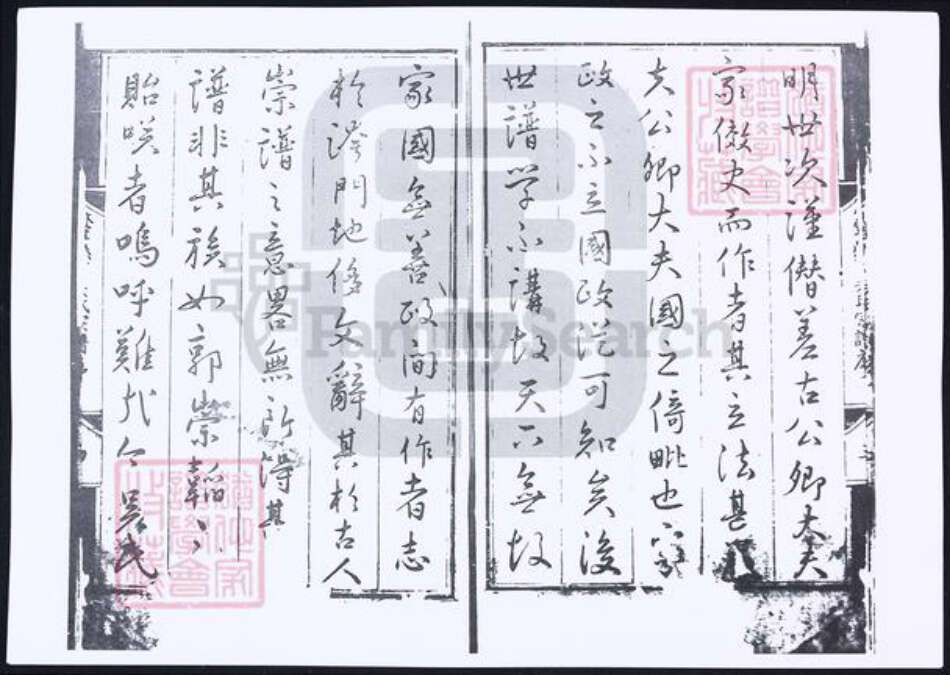 明世次謹僣差古公卿大夫
家倣史而作者其立法甚
夫公卿大夫國之倚毗也家
政之不立國政從可知矣後
世譜學不講故天下無故
家國無善政间有作者志
於誇門地侈文辭其於古人
崇譜之意畧無所得其
譜非其族如郭崇韜
貽咲者嗚呼難哉今吳氏
FamilySearch